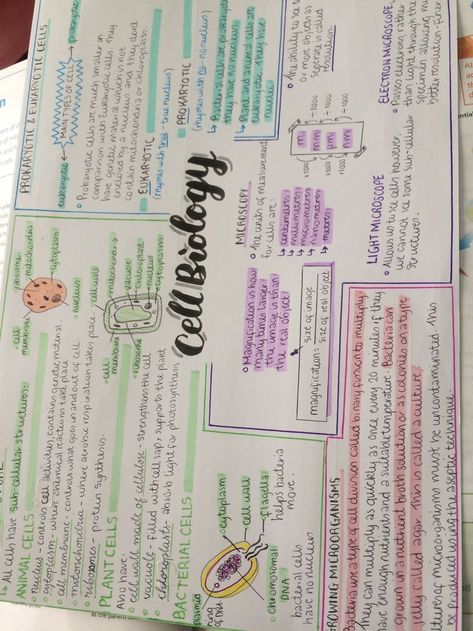 Cell Biology
PROKARYOTIC & EUKARYOTIC CELLS
MAIN TYPES OF CELL
eukaryotic
prokaryotic
Prokaryotic cells are much smaller in
comparison with Eukaryotic cells. They
have genetic material which is not
enclosed by a nucleus and they dont
contain mitochondria or chloroplasts.
EUKARYOTIC
(rhymes with true - true nucleus)
PROKARYOTIC
(rhymes with no - no nucleus)
Bacterial cells are prokaryotic
they have no nucleus
Plant and animal cells are
eukaryotic, they have
nuclei
All cells have sub-cellular structures:
ANIMAL CELLS
nucleus - controls cell activities, contains genetic material
cytoplasm - where chemical reactions take place
cell membrane - controls what goes in and out of cell
mitochondria - where aerobic respiration takes place.
ribosomes - protein synthesis.
ribosome
mitochondria
cytoplasm
nucleus
cell
membrane
PLANT CELLS
Also have:
cell wall made of cellulose - strengthens the cell
vacuole - filled with cell sap, supports the plant
chloroplasts - absorb light for photosynthesis
cell wall
mitochondria
vacuole
chloroplast
nucleus
cytoplasm
cell
membrane
ribosome
BACTERIAL CELLS
plasmid
cytoplasm
cell wall
flagella
helps bacteria
move
chromosomal
DNA
bacterial cells
have no nucleus
MICROSCOPY
The units of measurement
for cells are:
centimeters
millimeters
micrometers
nanometers
meters
Magnification is how
many times larger
the image is than
the real object
magnification = size of image
size of real object
resolution.
m
mm
µm
nm
÷1000
÷1000
÷1000
LIGHT MICROSCOPE
Allows us to see cells however,
we cannot see some sub-cellular
structures.
ELECTRON MICROSCOPE
Passes electrons rather
than light through the
specimen allowing much
better resolution.
GROWING MICROORGANISMS
Bacteria use a type of cell division called binary fission to multiply
they can multiply as quickly as once every 20 minutes if they
have enough nutrients and a suitable temperature. Bacteria can
grown in a nutrient broth solution or as colonies on a
jelly called agar. This is called a culture.
cultures of microorganisms must be uncontaminated. This
be produced using the aseptic technique.